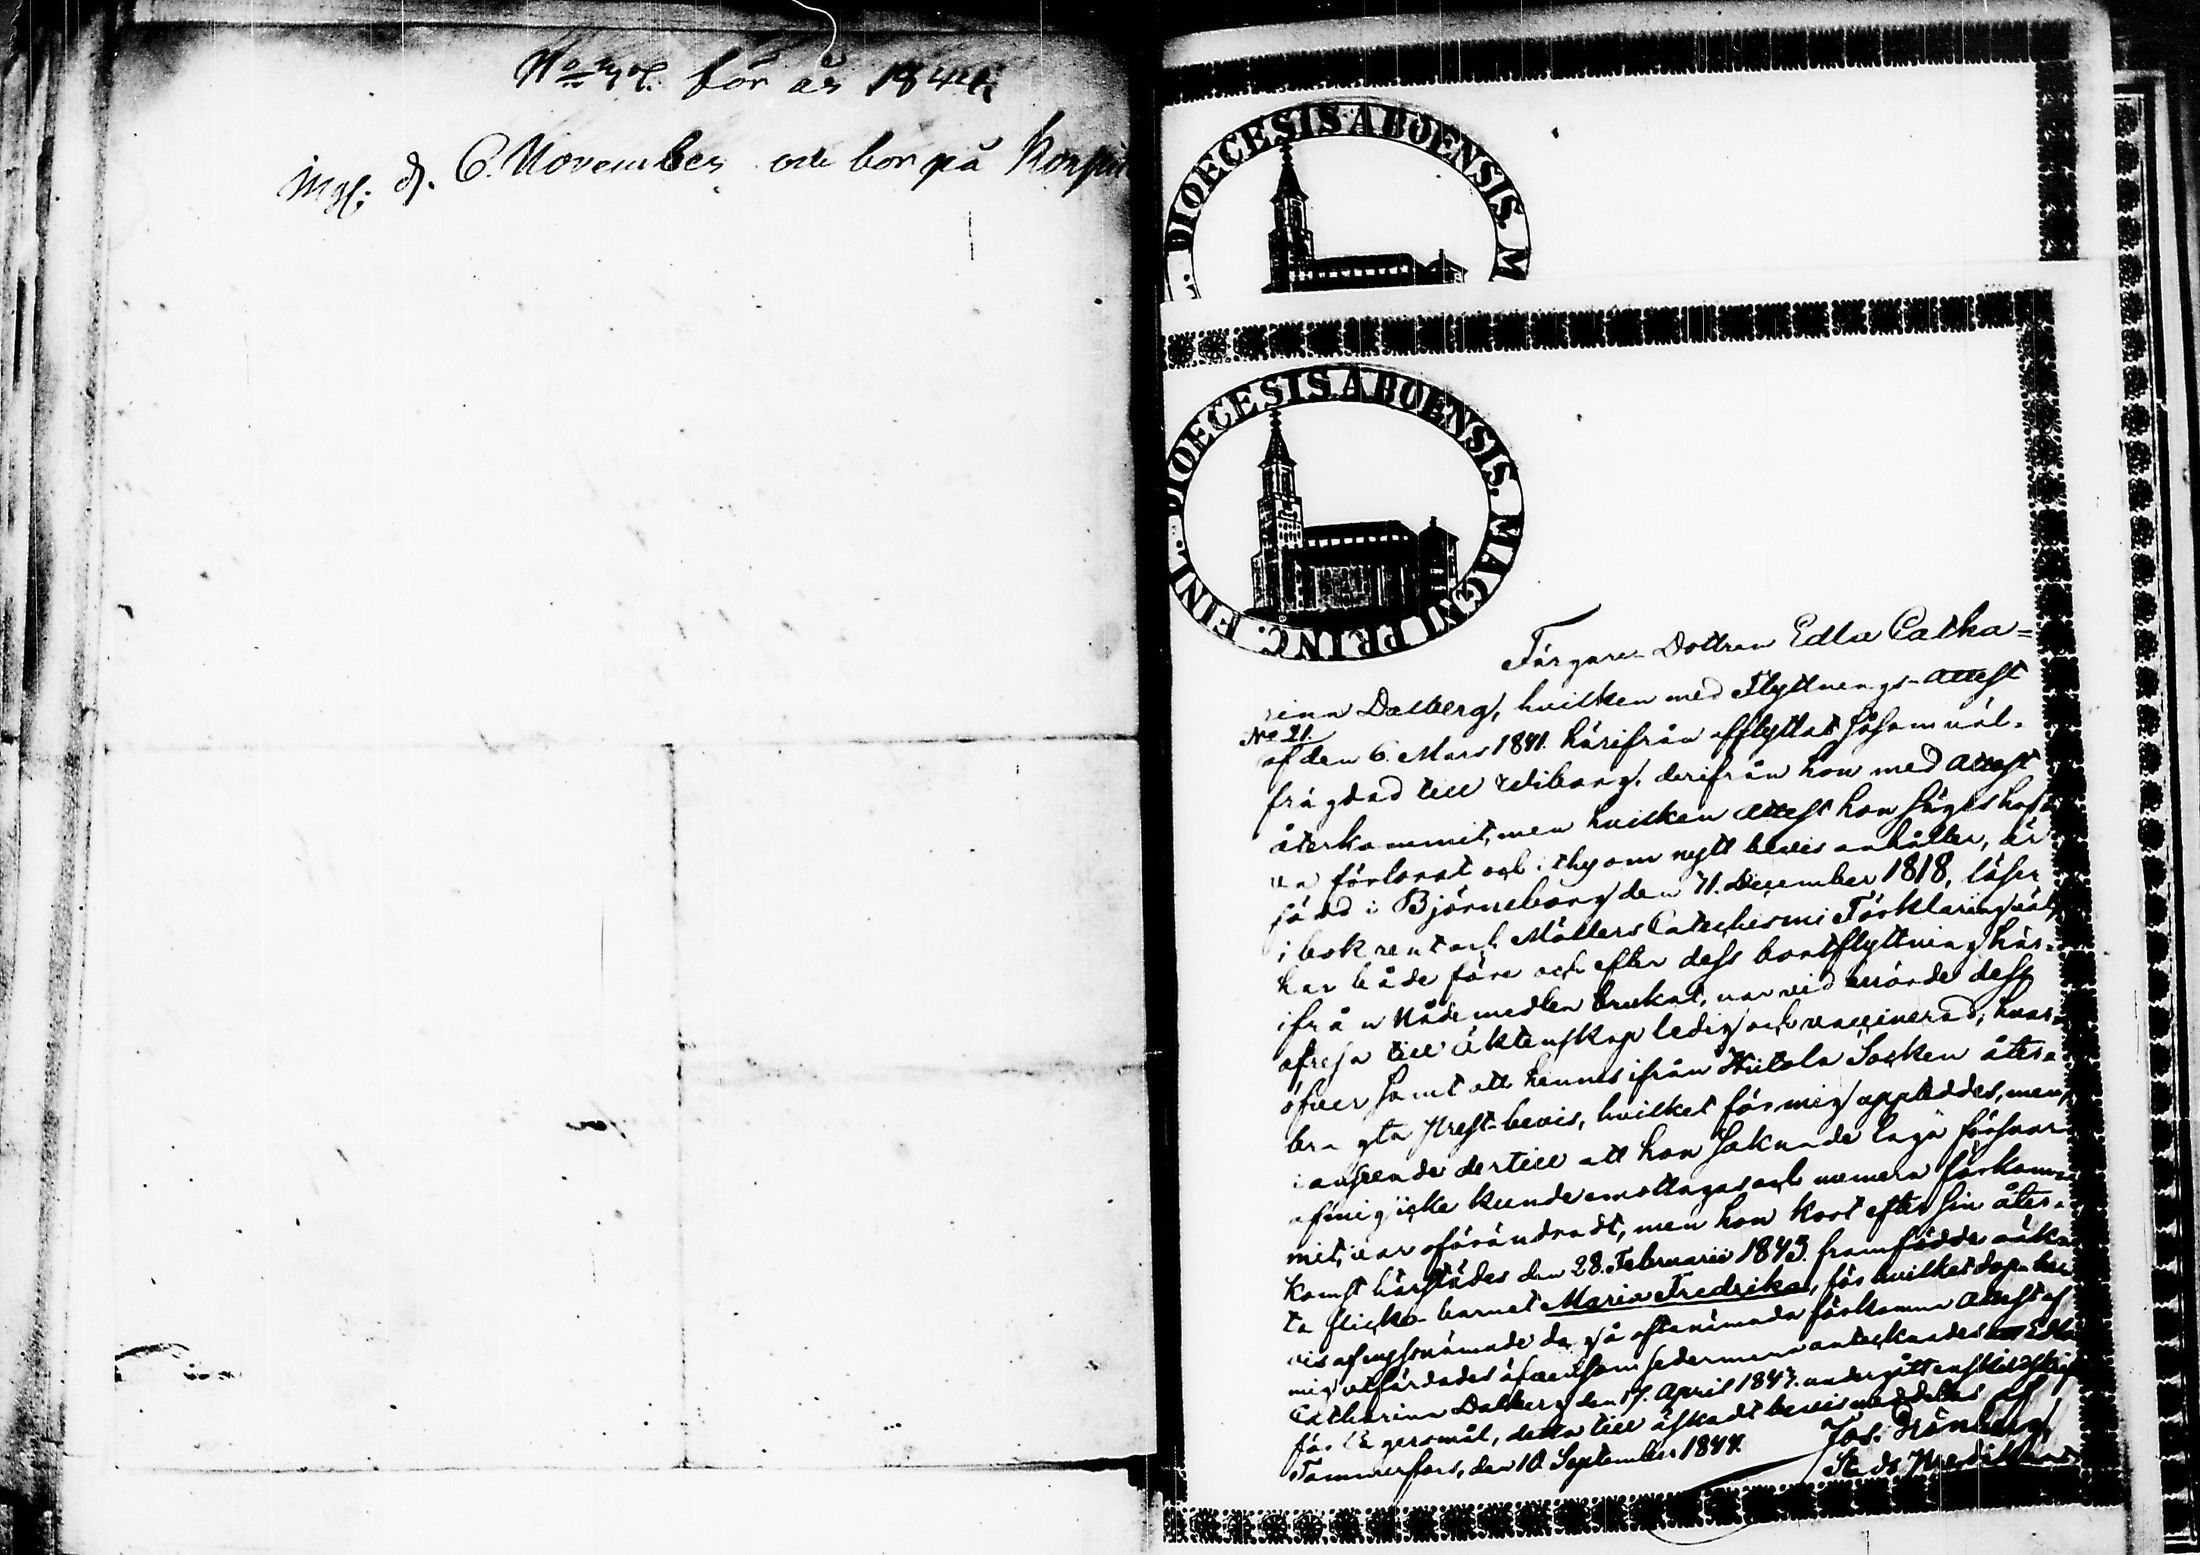 för år 1844
Ingl. d. 6. November och bor på
DIOECESIS ABOENSIS. M
DIOECESIS ABOENSIS. MAGNI PRINC. FINL.
Färgare Dottren Edla Catha=
rina Dalberg, hvilken med Flyttnings-attest
No 21.
af den 6. Mars 1841. härifrån afflyttat såsom väl-
frägdad till Wiborg, derifrån hon med attest
återkommit, men hvilken attest hon säges hafva
förlorat och i thy om nytt bevis anhåller, är
född i Björneborg den 11. December 1818, läser
i bok rent och Möllers Catechismi Förklaring väl,
har både före och efter dess bortflyttning här-
ifrån Nådemedlen brukat, var vid enär dess
afresa till äktenskap ledig och vaccinerad; hvar-
öfver samt att hennes ifrån Hiitola Socken åter-
bragta Prest-bevis, hvilket för mig uppteddes, men
i anseende dertill att hon saknade laga försvar
af mig icke kunde emottagas och numera förkom-
mit, var oförändradt, men hon kort efter sin åter-
komst härstädes den 28. Februarii 1843. framfödde oäk-
ta flicko-barnet Maria Fredrika, för hvilket dop-be-
vis af nyssnämnde dag å oftanämnda förkomna attest af
mig utfärdades äfvensom sedermera antecknades Edla
Catharina Dalberg den 17. April 1843. undergått enskild skrift
för Lägersmål, detta till äskadt bevis meddelas af
Tammerfors, den 10. September 1844. Jos. Grönberg,
Stads Predikant